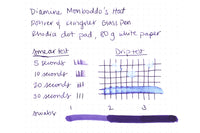 Diamine Monboddo's Hat
Rohrer & Klingner Glass Pen
Rhodia dot pad, 80 g white paper
Smear test Drip test
5 seconds
10 seconds
20 seconds
30 seconds
1 2 3
Swabs